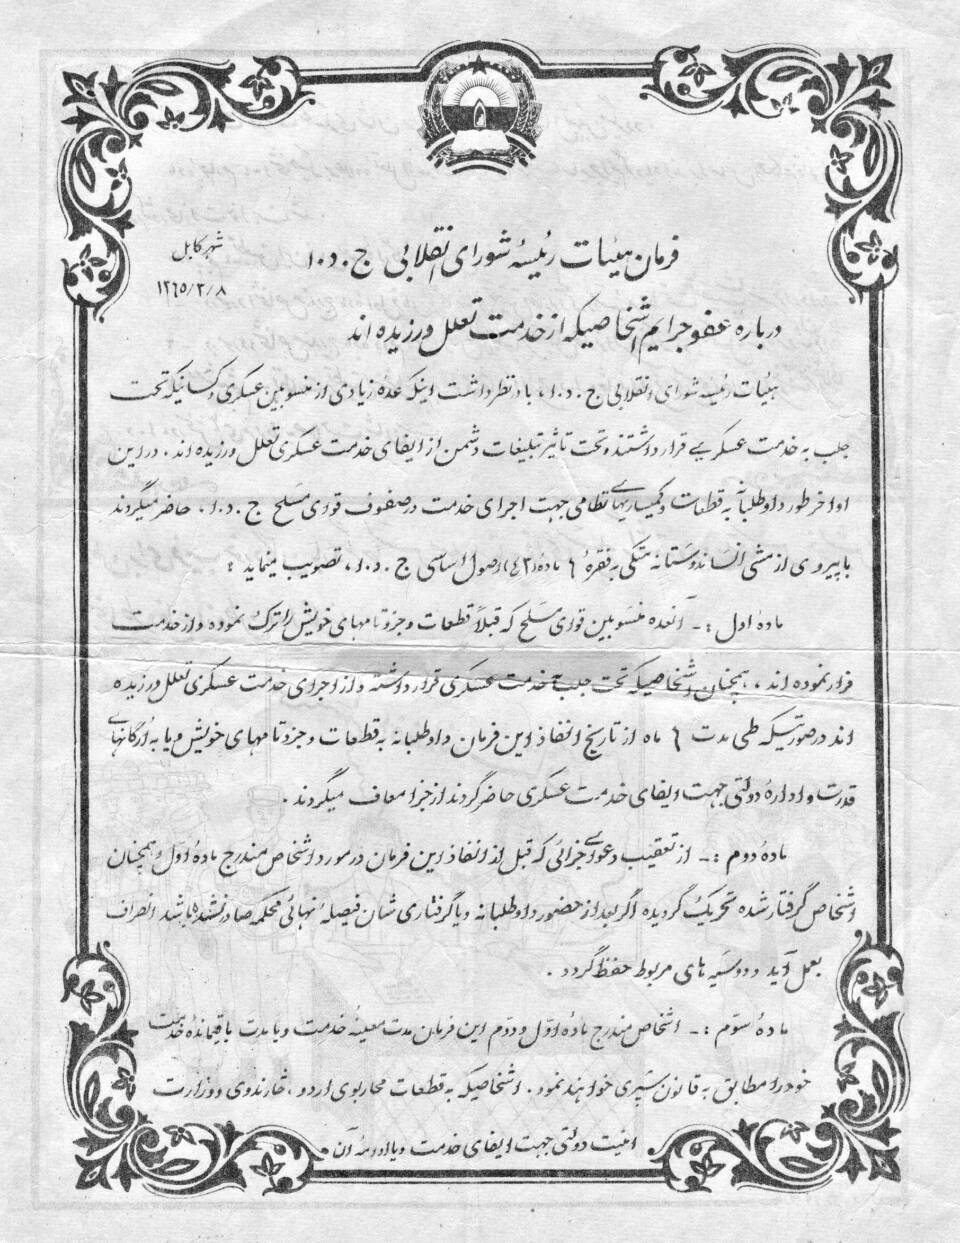 فرمان هیئات رئیسهٔ شورای انقلابی ج . د . ا
شهر کابل
۱۳۶۵/۳/۸
درباره عفو جرایم اشخاصیکه از خدمت تعلل ورزیده اند
هیئات رئیسه شورای انقلابی ج . د . ا ، با در نظر داشت اینکه عده زیادی از منسوبین عسکری و کسانیکه تحت
جلب به خدمت عسکریی قرار داشتند و تحت تاثیر تبلیغات دشمن از ایفای خدمت عسکری تعلل ورزیده اند . در این
اواخر طور داوطلبانه به قطعات و کمیساریهای نظامی جهت اجرای خدمت در صفوف قوای مسلح ج . د . ا ، حاضر میگردند
با پیروی از مشی انساندوستانه متکی به فقره ۶ مادهٔ (۴۳) اصول اساسی ج . د . ا ، تصویب مینماید :
مادهٔ اول :- آنعده منسوبین قوای مسلح که قبلاً قطعات و جزوتامهای خویش را ترک نموده و از خدمت
فرار نموده اند ، همچنان اشخاصیکه تحت جلب خدمت عسکری قرار داشته و از اجرای خدمت عسکری تعلل ورزیده
اند در صورتیکه طی مدت ۶ ماه از تاریخ انفاذ این فرمان داوطلبانه به قطعات و جزوتامهای خویش و یا به ارگانهای
قدرت و ادارهٔ دولتی جهت ایفای خدمت عسکری حاضر گردند از جزا معاف میگردند .
مادهٔ دوم :- از تعقیب دعوای جزائی که قبل از انفاذ این فرمان در مورد اشخاص مندرج مادهٔ اول و همچنان
اشخاص گرفتار شده تحریک گردیده اگر بعد از حضور داوطلبانه و یا گرفتاری شان فیصلهٔ نهائی محکمه صادر نشده باشد انصراف
بعمل آید و دوسیه های مربوط حفظ گردد .
مادهٔ سوم :- اشخاص مندرج مادهٔ اول و دوم این فرمان مدت معینهٔ خدمت و یا مدت باقیماندهٔ خدمت
خود را مطابق به قانون سپری خواهند نمود . اشخاصیکه به قطعات محاربوی اردو ، څارندوی و وزارت
امنیت دولتی جهت ایفای خدمت و یا ادامه آن